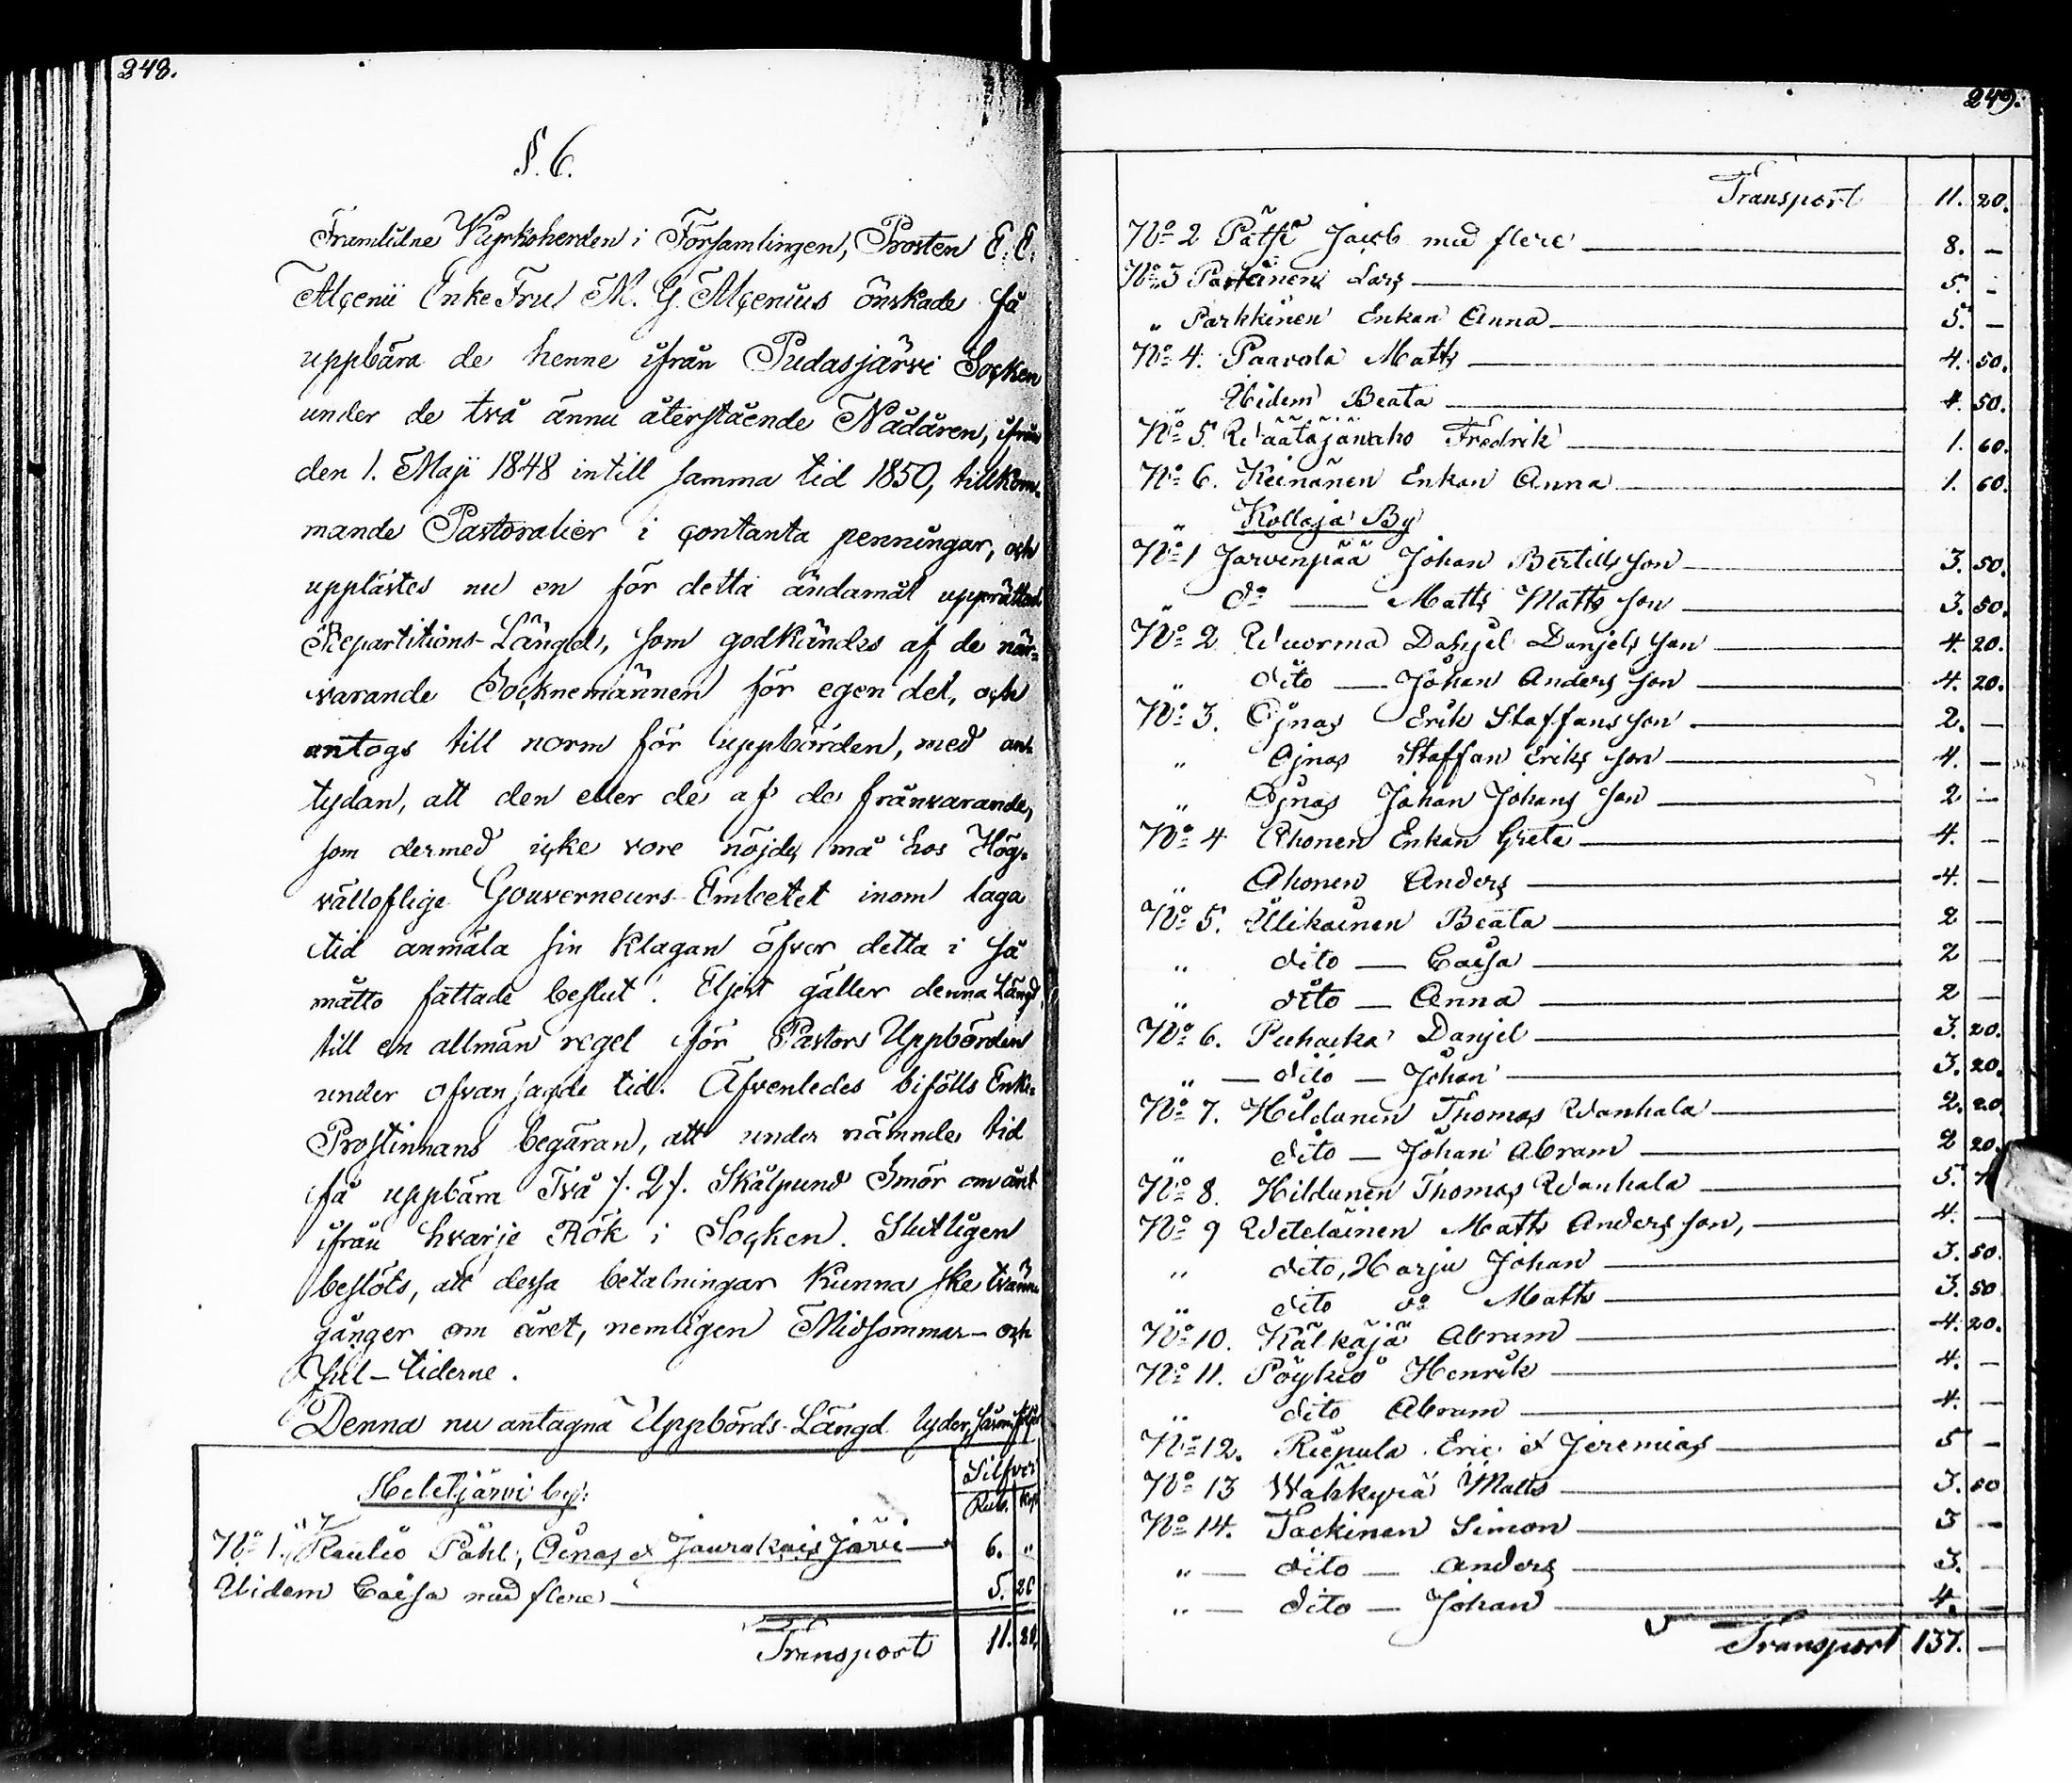 248.
§. 6.
Framlidne Kyrkoherden i Församlingen, Prosten E. E.
Alcenii Enke Fru M. G. Alcenius önskade få
uppbära de henne ifrån Pudasjärvi Socken
under de två ännu återstående Nådåren, ifrån
den 1. Maji 1848 intill samma tid 1850, tillkom-
mande Pastoralier i contanta penningar, och
upplästes nu en för detta ändamål upprättad
Repartitions-Längd, som godkändes af de när-
varande Socknemännen för egen del, och
antogs till norm för uppbörden, med an-
tydan, att den eller de af de frånvarande,
som dermed icke vore nöjde, må hos Hög-
välloflige Gouverneurs-Embetet inom laga
tid anmäla sin klagan öfver detta i så
måtto fattade beslut. Eljest gäller denna Längd
till en allmän regel för Pastors Uppbörden
under ofvansagde tid. Äfvenledes bifölls Enke-
Prostinnans begäran, att under nämnde tid
få uppbära Två /. 2 /. Skålpund Smör om året
ifrån hvarje Rök i Socken. Slutligen
beslöts, att dessa betalningar kunna ske tvänne
gånger om året, nemligen Midsommar- och
Jul-tiderne.
Denna nu antagna Uppbörds-Längd lyder, såsom följer
Silfver
Heletjärvi by:
Rub. Kop
No 1. Raulio Påhl, Ainas & Jaurakais Järvi 6. "
Ibidem Caisa med flere 5. 20
Transport 11. 20.
249.
Transport 11. 20.
No 2 Pätsi Jacob med flere 8. –
No 3 Parkinen Lars 5. –
" Parkkinen Enkan Anna 5. –
No 4. Paavola Matts 4. 50.
" Ibidem Beata 4. 50.
No 5. Wäätäjänaho Fredrik 1. 60.
No 6. Keinänen Enkan Anna 1. 60.
" Kollaja By
No 1 Jarvenpää Johan Bertills son 3. 50.
" do — Matts Matts son 3. 50.
No 2 Wuorma Danjel Danjels son 4. 20.
" dito — Johan Anders son 4. 20.
No 3. Ojnas Erik Staffans son 2. –
" Ojnas Staffan Eriks son 4. –
" Ojnas Johan Johans son 2 –
No 4 Ahonen Enkan Greta 4. –
" Ahonen Anders 4. –
No 5. Ülikainen Beata 2 –
" dito — Caisa 2 –
" dito — Anna 2 –
No 6. Puhacka Danjel 3. 20.
" — dito — Johan 3. 20.
No 7. Hildunen Thomas Wanhala 2. 20
" dito — Johan Abram 2 20.
No 8. Hildunen Thomas Wanhala 5.
No 9 Weteläinen Matts Anders son, 4. –
" dito, Harju Johan 3. 50.
" dito do Matts 3. 50
No 10. Kälkäjä Abram 4. 20.
No 11. Pöykiö Henrik 4. –
" dito Abram 4. –
No 12. Riepula Eric & Jeremias 5 –
No 13 Wähkyrä Matts 3. 50
No 14. Tackinen Simon 3 –
" — dito — Anders 3. –
" — dito — Johan 4. –
Transport 137. –